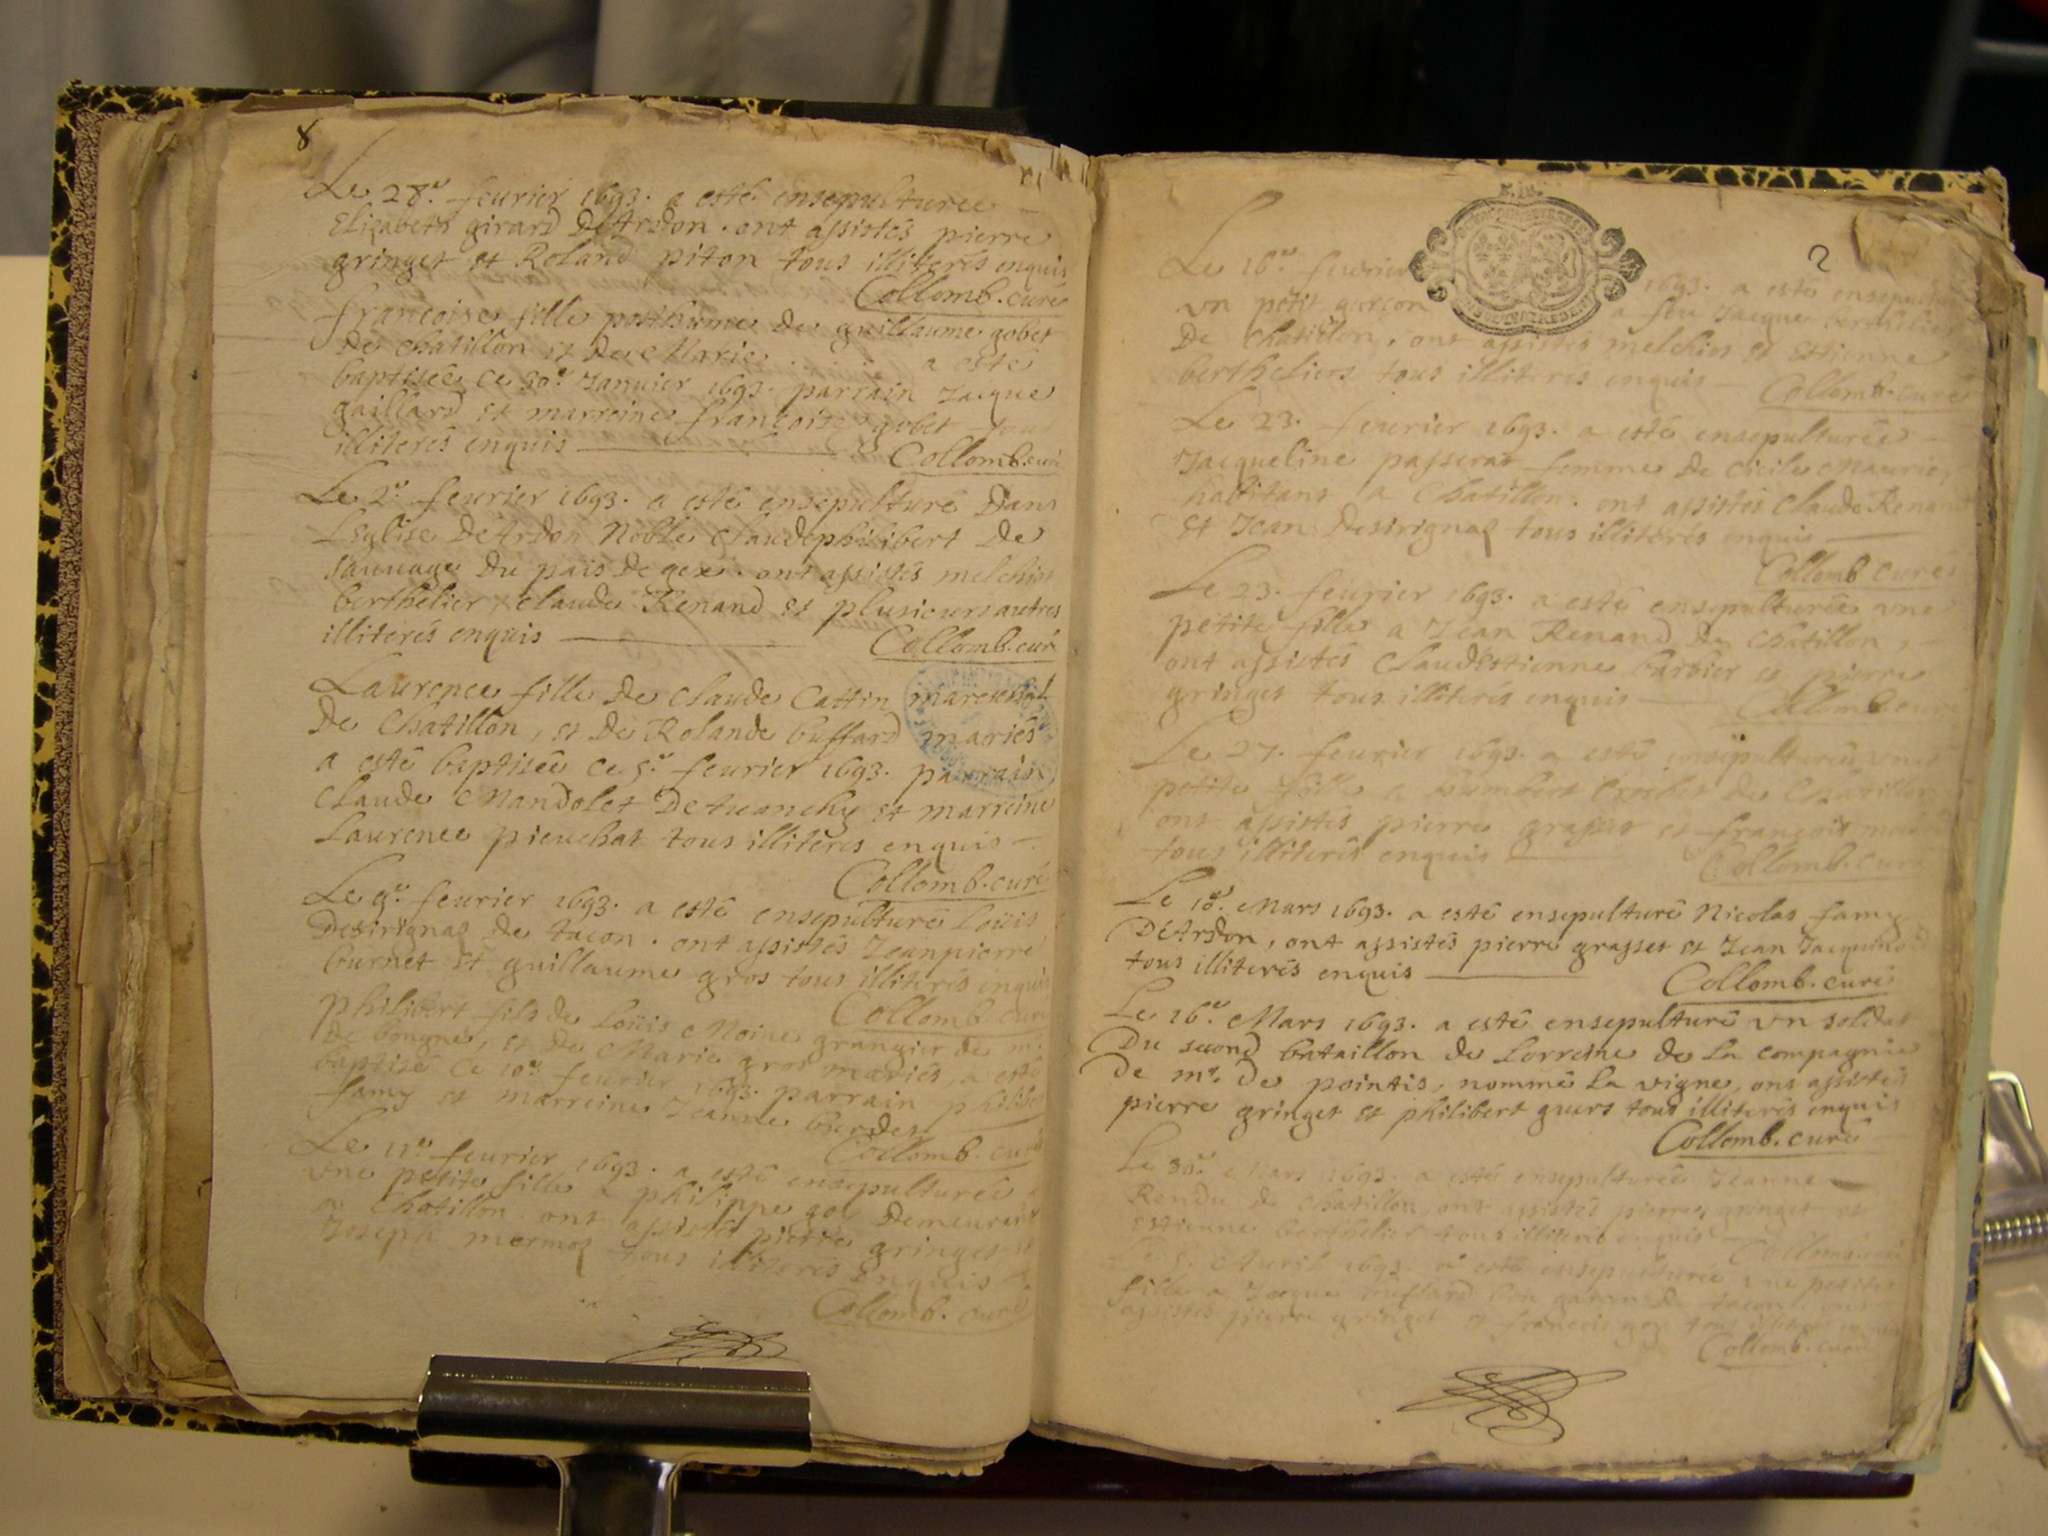 8
Le 28.e feurier 1693. a esté ensepulturee
Elizabeth girard D'Ardon. ont assistés pierre
gringet et Roland piton tous illiterés enquis
Collomb. curé
francoise fille posthume de guillaume gobet
de chatillon et de Marie . . . a esté
baptisée ce 30.e Januier 1693. parrain Jacque
gaillard et marreine françoise gobet tous
illiterés enquis
Collomb. curé
Le 2.e feurier 1693. a esté ensepulturé Dans
L'Eglise D'Ardon Noble Claudephilibert De
Sauuage Du païs De gex. ont assistés melchior
berthelier, claude Renand et plusieurs autres
illiterés enquis
Collomb. curé
Laurence fille De claude Cattin mareschal
De Chatillon, et De Rolande buffard mariés
a esté baptisée ce 5.e feurier 1693. parrain
Claude Mandolet et marreine
Laurence pieuchat tous illiterés enquis
Collomb. curé
Le 9.e feurier 1693. a esté ensepulturé Loüis
Desirignal de tacon. ont assistés Jeanpierre
burnet et guillaume gros tous illiterés enquis
Collomb. curé
philibert fils de Loüis Moine grangier de m.r
De bougne, et de Marie gros mariés, a esté
baptisé ce 10.e feurier 1693. parrain philibert
famy et marreine Jeanne burdet
Collomb. curé
Le 11.e feurier 1693. a esté ensepulturée
vne petite fille a philippe goy Demeurant
a Chatillon ont assistés pierre gringet et
Joseph mermoz tous illiterés enquis
Collomb. curé
2
Le 16.e feurier 1693. a esté ensepulturé
vn petit garcon a feu Jacque berthelier
De Chatillon, ont assistés melchior et Estienne
bertheliers tous illiterés enquis
Collomb. curé
Le 23. feurier 1693. a esté ensepulturée
Jacqueline passerat femme De Maurier
habitant a Chatillon. ont assistés Claude Renand
et Jean Desirignal tous illiterés enquis
Collomb curé
Le 23. feurier 1693. a esté ensepulturée vne
petite fille a Jean Renand De Chatillon,
ont assistés Claudestienne barbier et pierre
gringet tous illiterés enquis
Collomb. curé
Le 27. feurier 1693. a esté ensepulturée vne
petite fille a humbert de Chatillon
ont assistés pierre grasset et françois
tous illiterés enquis
Collomb. curé
Le 10.e Mars 1693. a esté ensepulturé Nicolas famy
D'Ardon, ont assistés pierre grasset et Jean Jacquinod
tous illiterés enquis
Collomb. curé
Le 16.e Mars 1693. a esté ensepulturé vn soldat
Du second bataillon de Lorreine de La compagnie
De m.r De pointis, nommé La vigne, ont assistés
pierre gringet et philibert guers tous illiterés enquis
Collomb. curé
Le 30.e Mars 1693. a esté ensepulturée Jeanne
Rendu de chatillon, ont assistés pierre gringet et
Estienne berthelier tous illiterés enquis
Collomb. curé
Le 5. Auril 1693. a esté ensepulturée vne petite
fille a Jacque buffard de tacon. ont
assistés pierre gringet et françois goy tous illiterés enquis
Collomb. curé